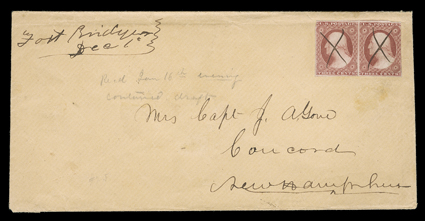 Fort Bridger
Dec 1st
U.S. POSTAGE
U.S. POSTAGE
THREE CENTS
THREE CENTS
Recd Jan 16th evening
contained
Mrs Capt J. A Gove
Concord
New Hampshire